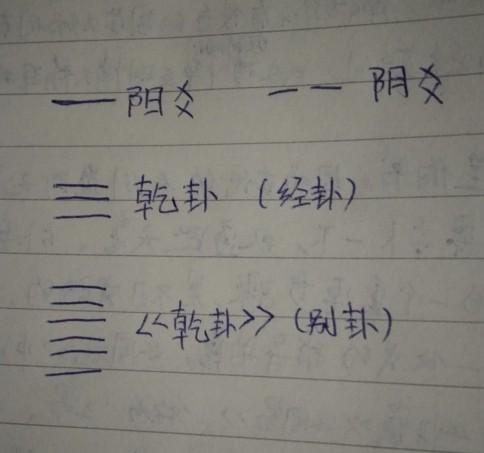 一 阳爻 -- 阴爻
☰ 乾卦 (经卦)
䷀ 《乾卦》 (别卦)